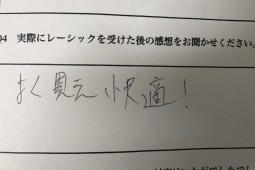 04 実際にレーシックを受けた後の感想をお聞かせください。
よく見え 快適！